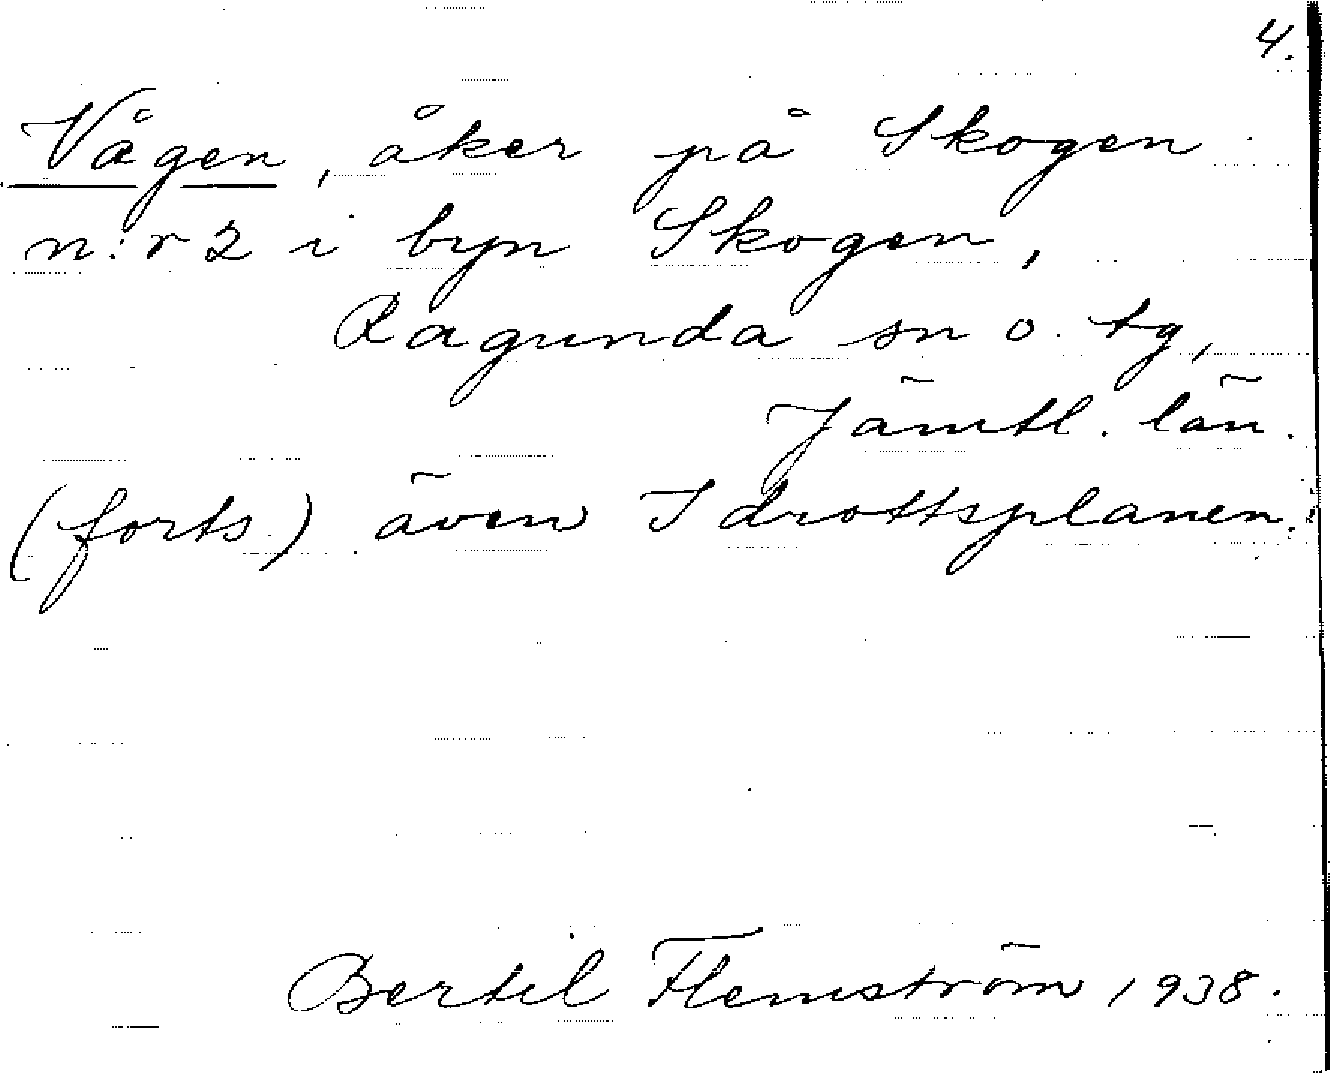 4.
Vågen, åker på Skogen
n:r 2 i byn Skogen,
Ragunda sn o. tg,
Jämtl. län.
(forts) även Idrottsplanen.
Bertil Flemström 1938.